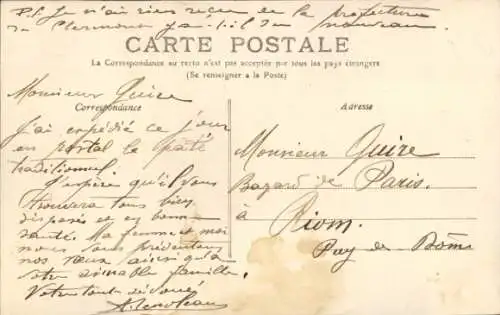 P.S. Je n'ai rien reçu de la préfecture
de Clermont y a-t-il du nouveau.
CARTE POSTALE
La Correspondance au recto n'est pas acceptée par tous les pays étrangers
(Se renseigner a la Poste)
Correspondance
Monsieur Quire
J'ai expédié ce jour
en postal le paté
traditionnel.
J'espère qu'il vous
trouvera tous bien
disposés et en bonne
santé. Ma femme et moi
nous vous présentons
nos vœux ainsi qu'à
votre aimable famille.
Votre tout dévoué
Adresse
Monsieur Quire
Bazard de Paris.
à
Riom.
Puy de Dôme